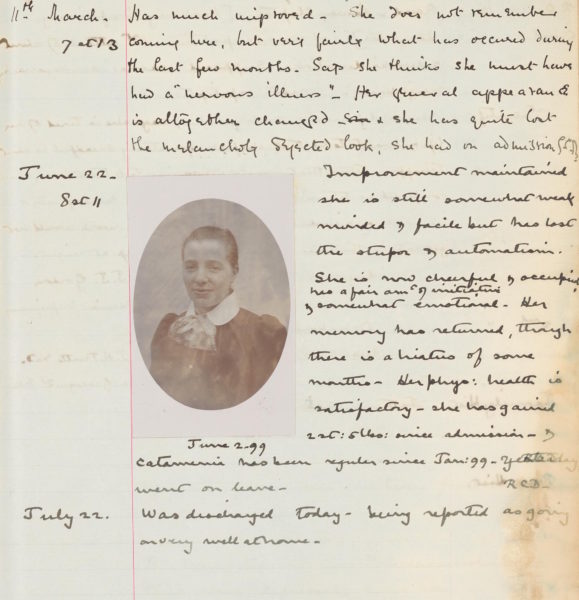 11th March. Has much improved. She does not remember
7 st 13 coming here, but very fairly what has occured during
the last few months. Says she thinks she must have
had a "nervous illness". Her general appearance
is altogether changed & she has quite lost
the melancholy dejected look, she had on admission
June 22. Improvement maintained
8 st 11 she is still somewhat weak
minded & facile but has lost
the stupor & automatism.
She is now cheerful & occupied
has a fair amt of initiative
& somewhat emotional. Her
memory has returned, though
there is a hiatus of some
months. Her phys: health is
satisfactory. She has gained
2 st: 5 lbs: since admission. &
June 2. 99
catamenia has been regular since Jan: 99.
went on leave. R.C.D.
July 22. Was discharged today. being reported as going
on very well at home.